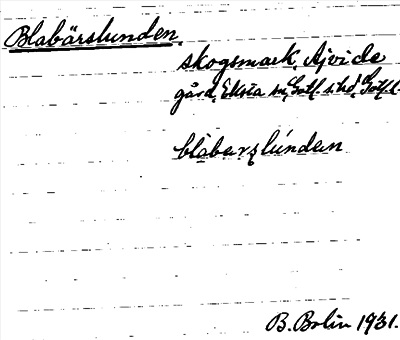 Blabärslunden.
skogsmark, Ajvide
gård, Eksta sn, Gotl. s. hd, Gotl. l.
blåbarslúndan
B. Bolin 1931.